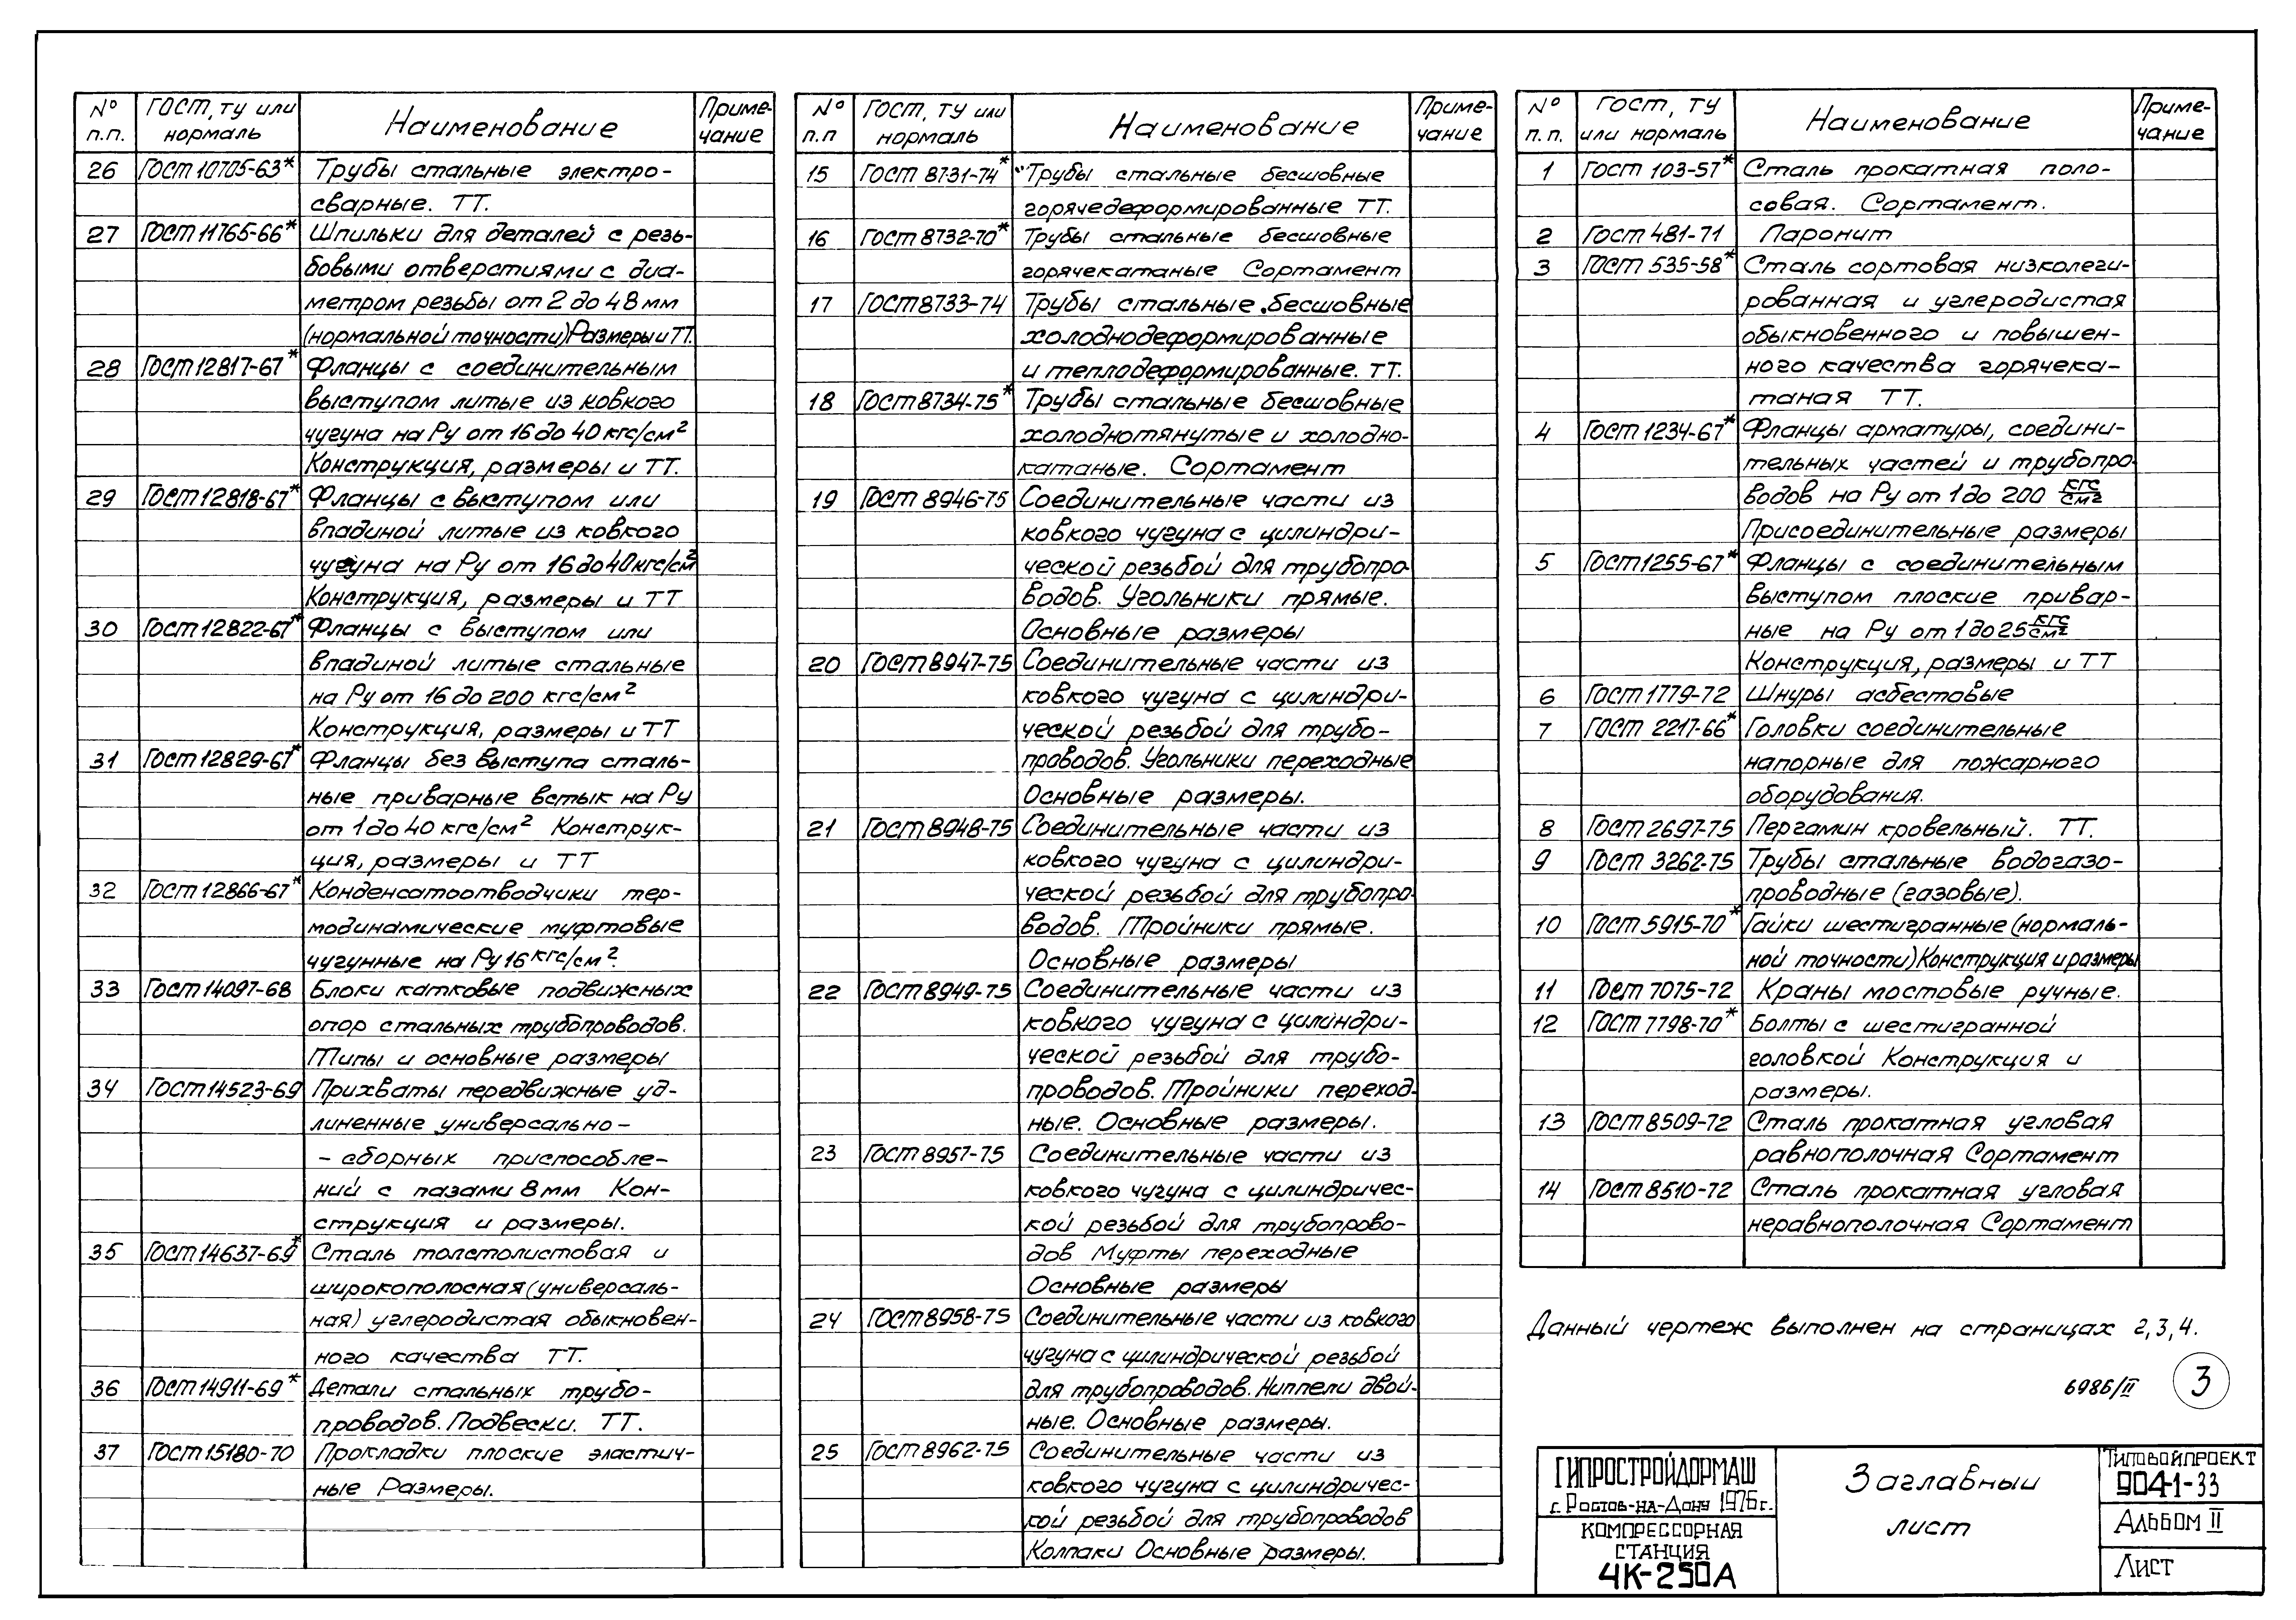 № ГОСТ, ТУ или Наименование Приме-
п.п. нормаль чание
26 ГОСТ 10705-63* Трубы стальные электро-
сварные. ТТ.
27 ГОСТ 11765-66* Шпильки для деталей с резь-
бовыми отверстиями с диа-
метром резьбы от 2 до 48 мм
(нормальной точности) Размеры и ТТ.
28 ГОСТ 12817-67* Фланцы с соединительным
выступом литые из ковкого
чугуна на Ру от 16 до 40 кгс/см²
Конструкция, размеры и ТТ.
29 ГОСТ 12818-67* Фланцы с выступом или
впадиной литые из ковкого
чугуна на Ру от 16 до 40 кгс/см²
Конструкция, размеры и ТТ
30 ГОСТ 12822-67* Фланцы с выступом или
впадиной литые стальные
на Ру от 16 до 200 кгс/см²
Конструкция, размеры и ТТ
31 ГОСТ 12829-67* Фланцы без выступа сталь-
ные приварные встык на Ру
от 1 до 40 кгс/см² Конструк-
ция, размеры и ТТ
32 ГОСТ 12866-67* Конденсатоотводчики тер-
модинамические муфтовые
чугунные на Ру 16 кгс/см².
33 ГОСТ 14097-68 Блоки катковые подвижных
опор стальных трубопроводов.
Типы и основные размеры
34 ГОСТ 14523-69 Прихваты передвижные уд-
линенные универсально-
-сборных приспособле-
ний с пазами 8 мм Кон-
струкция и размеры.
35 ГОСТ 14637-69* Сталь толстолистовая и
широкополосная (универсаль-
ная) углеродистая обыкновен-
ного качества ТТ.
36 ГОСТ 14911-69* Детали стальных трубо-
проводов. Подвески. ТТ.
37 ГОСТ 15180-70 Прокладки плоские эластич-
ные Размеры.
№ ГОСТ, ТУ или Наименование Приме-
п.п нормаль чание
15 ГОСТ 8731-74* Трубы стальные бесшовные
горячедеформированные ТТ.
16 ГОСТ 8732-70* Трубы стальные бесшовные
горячекатаные Сортамент
17 ГОСТ 8733-74 Трубы стальные бесшовные
холоднодеформированные
и теплодеформированные. ТТ.
18 ГОСТ 8734-75* Трубы стальные бесшовные
холоднотянутые и холодно-
катаные. Сортамент
19 ГОСТ 8946-75 Соединительные части из
ковкого чугуна с цилиндри-
ческой резьбой для трубопро-
водов. Угольники прямые.
Основные размеры
20 ГОСТ 8947-75 Соединительные части из
ковкого чугуна с цилиндри-
ческой резьбой для трубо-
проводов. Угольники переходные
Основные размеры.
21 ГОСТ 8948-75 Соединительные части из
ковкого чугуна с цилиндри-
ческой резьбой для трубопро-
водов. Тройники прямые.
Основные размеры
22 ГОСТ 8949-75 Соединительные части из
ковкого чугуна с цилиндри-
ческой резьбой для трубо-
проводов. Тройники переход-
ные. Основные размеры.
23 ГОСТ 8957-75 Соединительные части из
ковкого чугуна с цилиндричес-
кой резьбой для трубопрово-
дов Муфты переходные
Основные размеры
24 ГОСТ 8958-75 Соединительные части из ковкого
чугуна с цилиндрической резьбой
для трубопроводов. Ниппели двой-
ные. Основные размеры.
25 ГОСТ 8962-75 Соединительные части из
ковкого чугуна с цилиндричес-
кой резьбой для трубопроводов
Колпаки Основные размеры.
№ ГОСТ, ТУ Наименование Приме-
п.п. или нормаль чание
1 ГОСТ 103-57* Сталь прокатная поло-
совая. Сортамент.
2 ГОСТ 481-71 Паронит
3 ГОСТ 535-58* Сталь сортовая низколеги-
рованная и углеродистая
обыкновенного и повышен-
ного качества горячека-
таная ТТ.
4 ГОСТ 1234-67* Фланцы арматуры, соедини-
тельных частей и трубопро-
водов на Ру от 1 до 200 кгс/см²
Присоединительные размеры
5 ГОСТ 1255-67* Фланцы с соединительным
выступом плоские привар-
ные на Ру от 1 до 25 кгс/см²
Конструкция, размеры и ТТ
6 ГОСТ 1779-72 Шнуры асбестовые
7 ГОСТ 2217-66* Головки соединительные
напорные для пожарного
оборудования.
8 ГОСТ 2697-75 Пергамин кровельный. ТТ.
9 ГОСТ 3262-75 Трубы стальные водогазо-
проводные (газовые).
10 ГОСТ 5915-70* Гайки шестигранные (нормаль-
ной точности) Конструкция и размеры
11 ГОСТ 7075-72 Краны мостовые ручные.
12 ГОСТ 7798-70* Болты с шестигранной
головкой Конструкция и
размеры.
13 ГОСТ 8509-72 Сталь прокатная угловая
равнополочная Сортамент
14 ГОСТ 8510-72 Сталь прокатная угловая
неравнополочная Сортамент
Данный чертеж выполнен на страницах 2, 3, 4.
6986/II 3
ГИПРОСТРОЙДОРМАШ
г. Ростов-на-Дону 1976 г.
КОМПРЕССОРНАЯ
СТАНЦИЯ
4К-250А
Заглавный
лист
Типовой проект
904-1-33
Альбом II
Лист